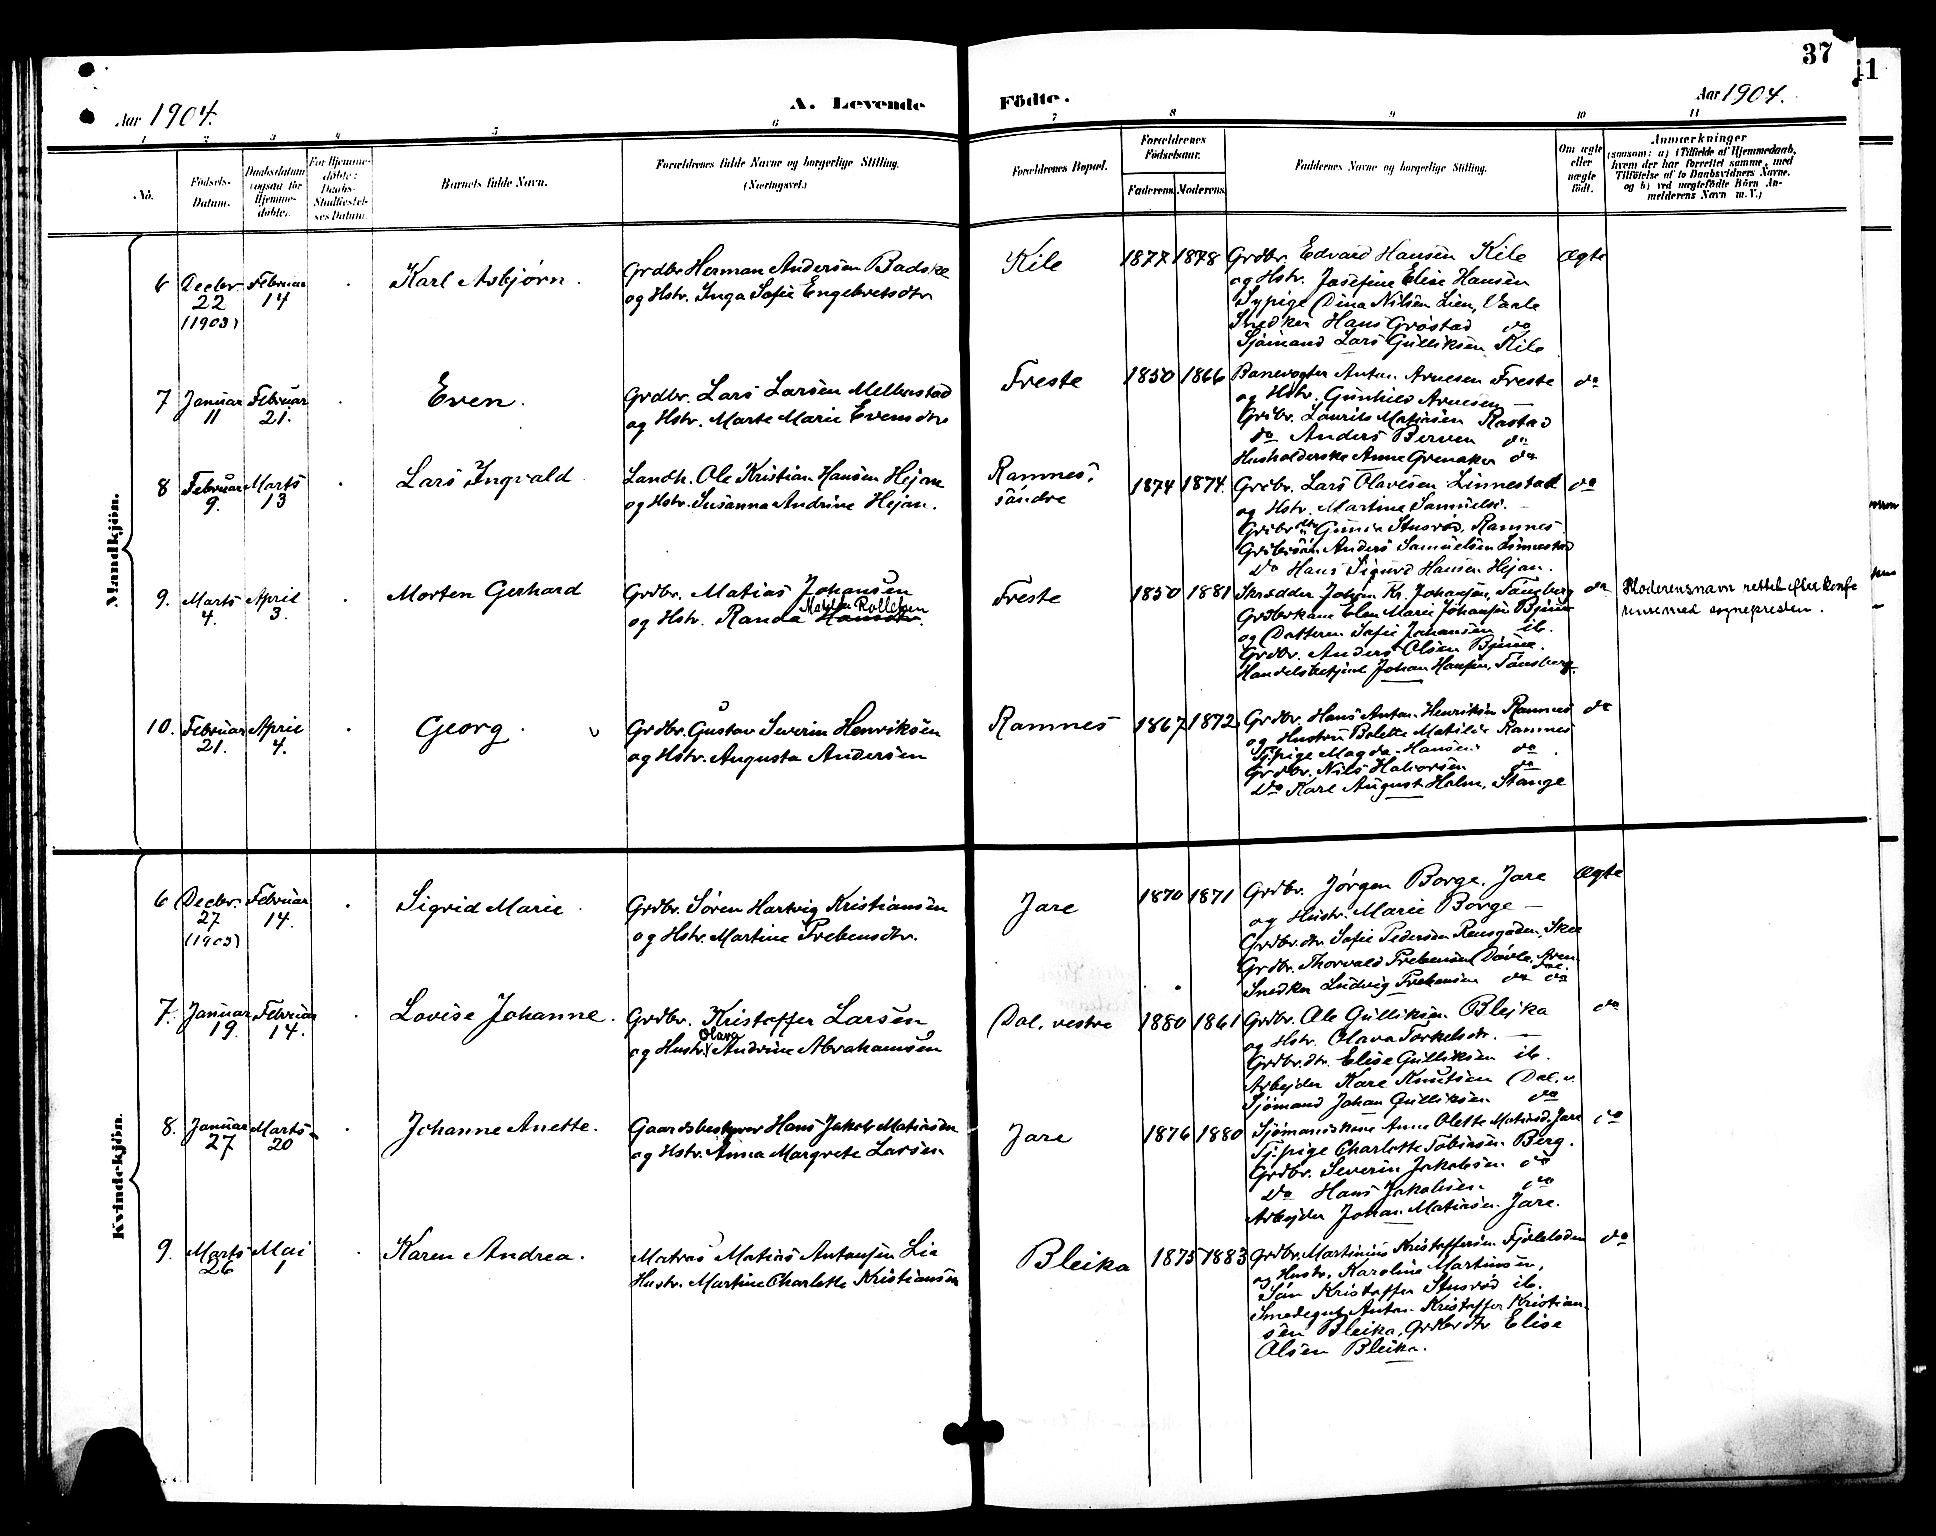 37
41
Aar 1904.
A. Levende Födte.
Aar 1904.
1 2 3 4 5 6 7 8 9 10 11
No.
Födsels-Datum.
Daabsdatum (ogsaa for Hjemme-döbte).
For Hjemme-döbte: Daabs-Stadfæstel-ses Datum.
Barnets fulde Navn.
Forældrenes fulde Navne og borgerlige Stilling.
(Næringsvei.)
Forældrenes Bopæl.
Forældrenes Födselsaar.
Faderens. Moderens.
Faddernes Navne og borgerlige Stilling.
Om ægte eller uægte födt.
Anmærkninger
(saasom: a) i Tilfælde af Hjemmedaab,
hvem der har forrettet samme, med
Tilföielse af to Daabsvidners Navne,
og b) ved uægtefödte Börn An-
melderens Navn m. V.)
Mandkjön.
6 Decbr. 22 (1903) Februar 14 Karl Asbjørn.
Grdbr. Herman Andersen Badske
og Hstr. Inga Sofie Engebretsdtr
Kile 1877 1878
Grdbr. Edvard Hansen Kile
og Hstr. Josefine Elise Hansen
Sypige Dina Nilsen Lien, Vaale
Snedker Hans Grøstad do
Sjömand Lars Gulliksen Kile
Ægte
7 Januar 11 Februar 21. Even.
Grdbr. Lars Larsen Melberstad
og Hstr. Marte Marie Evensdtr
Freste 1850 1866
Banevogter Anton Arnesen Freste
og Hstr. Gunhild Arnesen —
Grdbr. Laurits Matisen Rastad
do Anders Berven do
Husholderske Anne Grenaker do
do
8 Februar 9. Marts 13 Lars Ingvald
Landh. Ole Kristian Hansen Hejan
og Hstr. Susanna Andrine Hejan.
Ramnes, söndre 1874 1874.
Grdbr. Lars Olavesen Linnestad
og Hstr. Martine Samuels. —
Grdbr dtr Gunda Stusrød, Ramnes
Grdbrsön Anders Samuelsen Linnestad
do Hans Sigurd Hansen Hejan.
do
9. Marts 4. April 3. Morten Gerhard
Grdbr. Matias Johansen
og Hstr. Randa Hansdtr. Matilda Rollefsen
Freste 1850 1881
Skrædder Johan Kr. Johansen, Tönsberg
Grdbrkone Elen Marie Johansen Bjune
og Datteren Sofie Johansen ib.
Grdbr. Anders Olsen Bjune.
Handelsbetjent Johan Hansen, Tönsberg.
do
Moderensnavn rettet efter konfe
rense med sognepresten.
10. Februar 21. April 4. Georg.
Grdbr. Gustav Severin Henriksen
og Hstr. Augusta Andersen
Ramnes 1867 1872
Grdbr. Hans Anton Henriksen Ramnes
og Hustru Bolette Matilde Ramnes
Tj.pige Magda Hansen do
Grdbr. Nils Halvorsen do
Do Karl August Holm, Stange
do
Kvindekjön.
6 Decbr. 27 (1903) Februar 14. Sigrid Marie
Grdbr. Søren Hartvig Kristiansen
og Hstr. Martine Prebensdtr.
Jare 1870 1871
Grdbr. Jørgen Borge, Jare
og Hustr. Marie Borge —
Grdbr.dtr. Sofie Pedersen
Grdbr. Thorvald Prebensen
Snedker Ludvig Prebensen do do
Ægte
7. Januar 19. Februar 14. Lovise Johanne.
Grdbr. Kristoffer Larsen
og Hustr. Olava Andrine Abrahamsen
Dal, vestre 1880 1861
Grdbr. Ole Gulliksen Bleika
og Hstr. Olava Torkelsdtr. —
Grdbr.dtr. Elise Gulliksen ib.
Arbejder Kare Knutsen Dal, v.
Sjömand Johan Gulliksen do
do
8. Januar 27 Marts 20 Johanne Anette.
Gaardsbestyrer Hans Jakob Matisen
og Hstr. Anna Margrete Larsen
Jare 1876 1880
Sjömandskone Anne Olette Matiasd. Jare
Tj.pige Charlotte Tobiasen Berg.
Grdbr. Severin Jakobsen do
Do Hans Jakobsen do
Arbejder Johan Matisen Jare.
do
9. Marts 26 Mai 1 Karen Andrea.
Matros Matias Antonsen Lie
Hustr. Martine Charlotte Kristiansen
Bleika 1875 1883
Grdbr. Martinius Kristoffersen
og Hustr. Karoline Martinsen,
Sön Kristoffer Stusrød ib.
Smedegut Anton Kristoffer Kristian-
sen Bleika, Grdbrdtr Elise
Olsen Bleika.
do